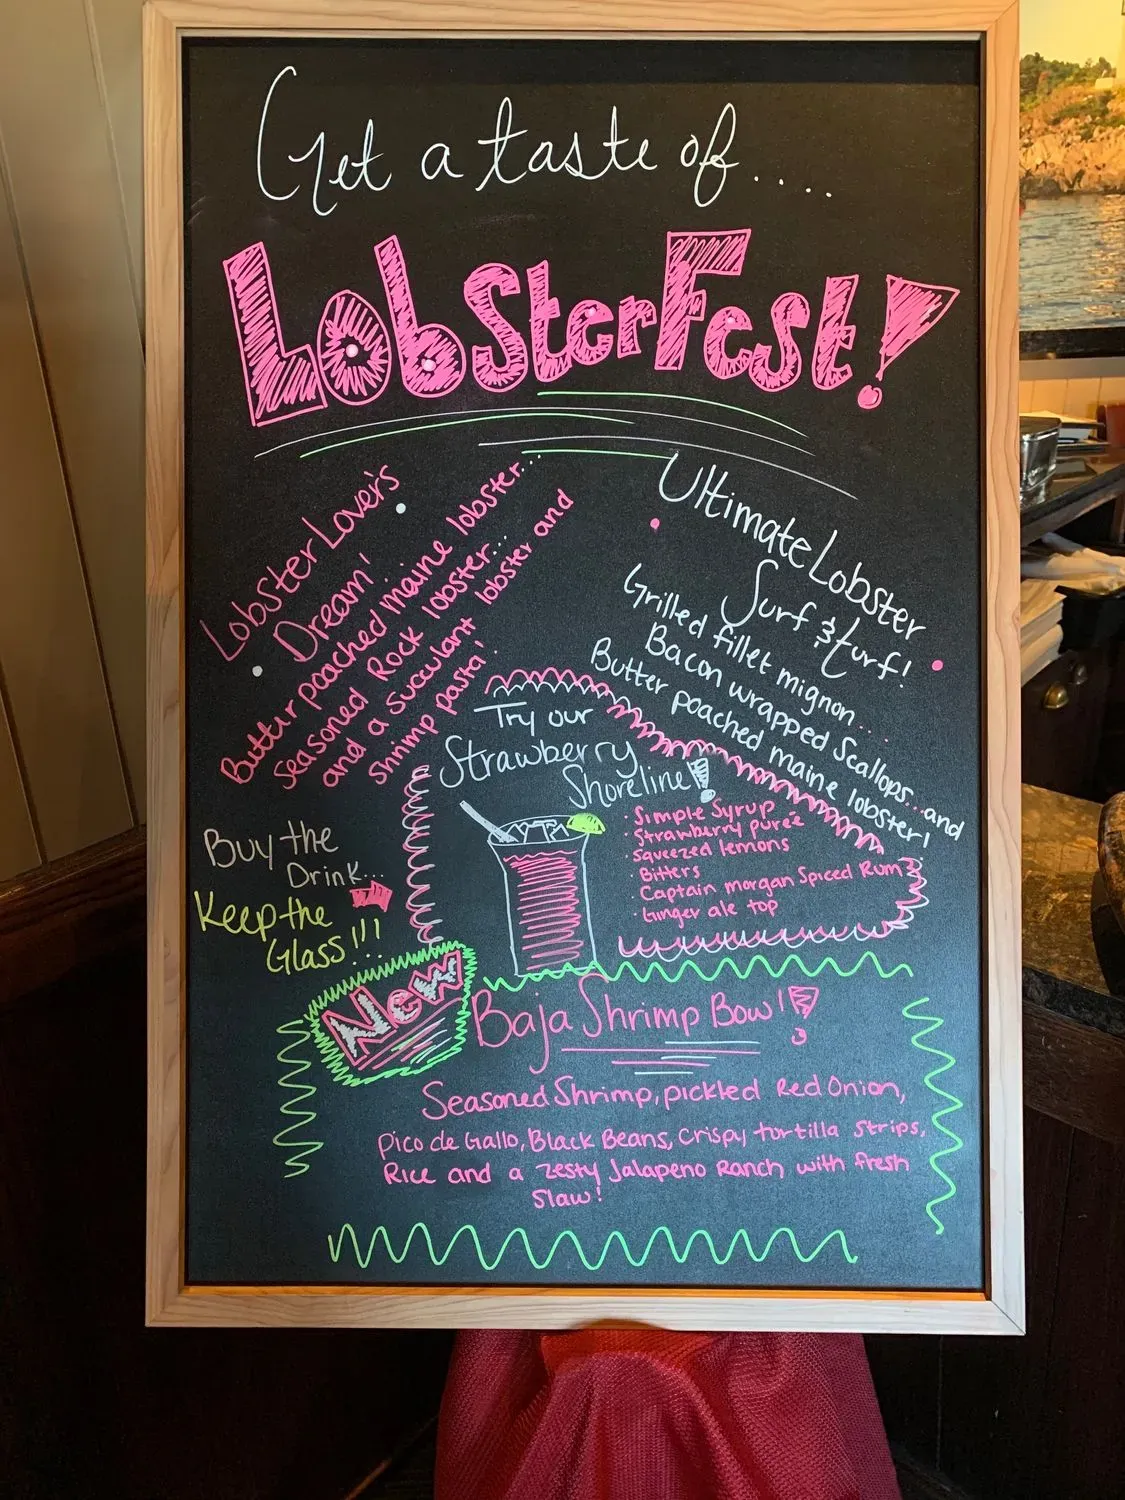 Get a taste of....
LobsterFest!
Lobster Lover's
Dream!
Butter poached maine lobster...
Seasoned Rock lobster...
and a succulant lobster and
shrimp pasta!
Ultimate Lobster
Surf & turf!
Grilled fillet mignon....
Bacon wrapped Scallops...and
Butter poached maine lobster!
Try our
Strawberry
Shoreline!
• Simple Syrup
• Strawberry purée
• Squeezed lemons
Bitters
• Captain morgan Spiced Rum
• Ginger ale top
Buy the
Drink...
Keep the
Glass!!!
New
Baja Shrimp Bowl!
Seasoned Shrimp, pickled Red Onion,
Pico de Gallo, Black Beans, Crispy tortilla Strips,
Rice and a zesty Jalapeno Ranch with fresh
Slaw!